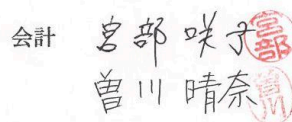 会計 宮部 咲子 宮部
曽川 晴奈 曽川